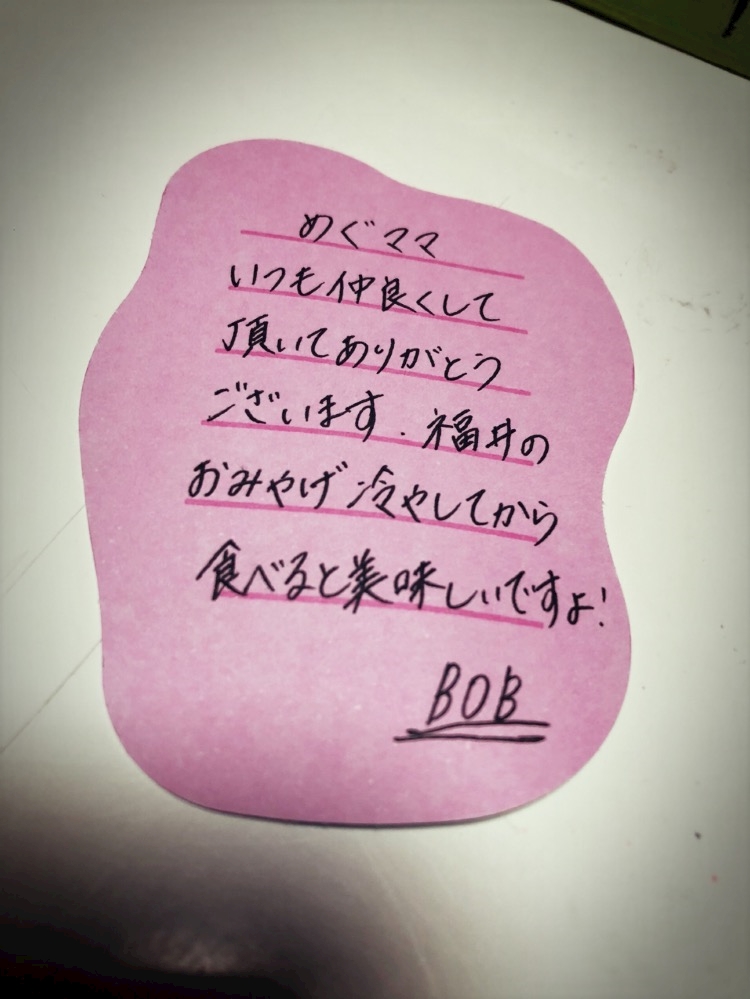 めぐママ
いつも仲良くして
頂いてありがとう
ございます.福井の
おみやげ冷やしてから
食べると美味しいですよ!
BOB